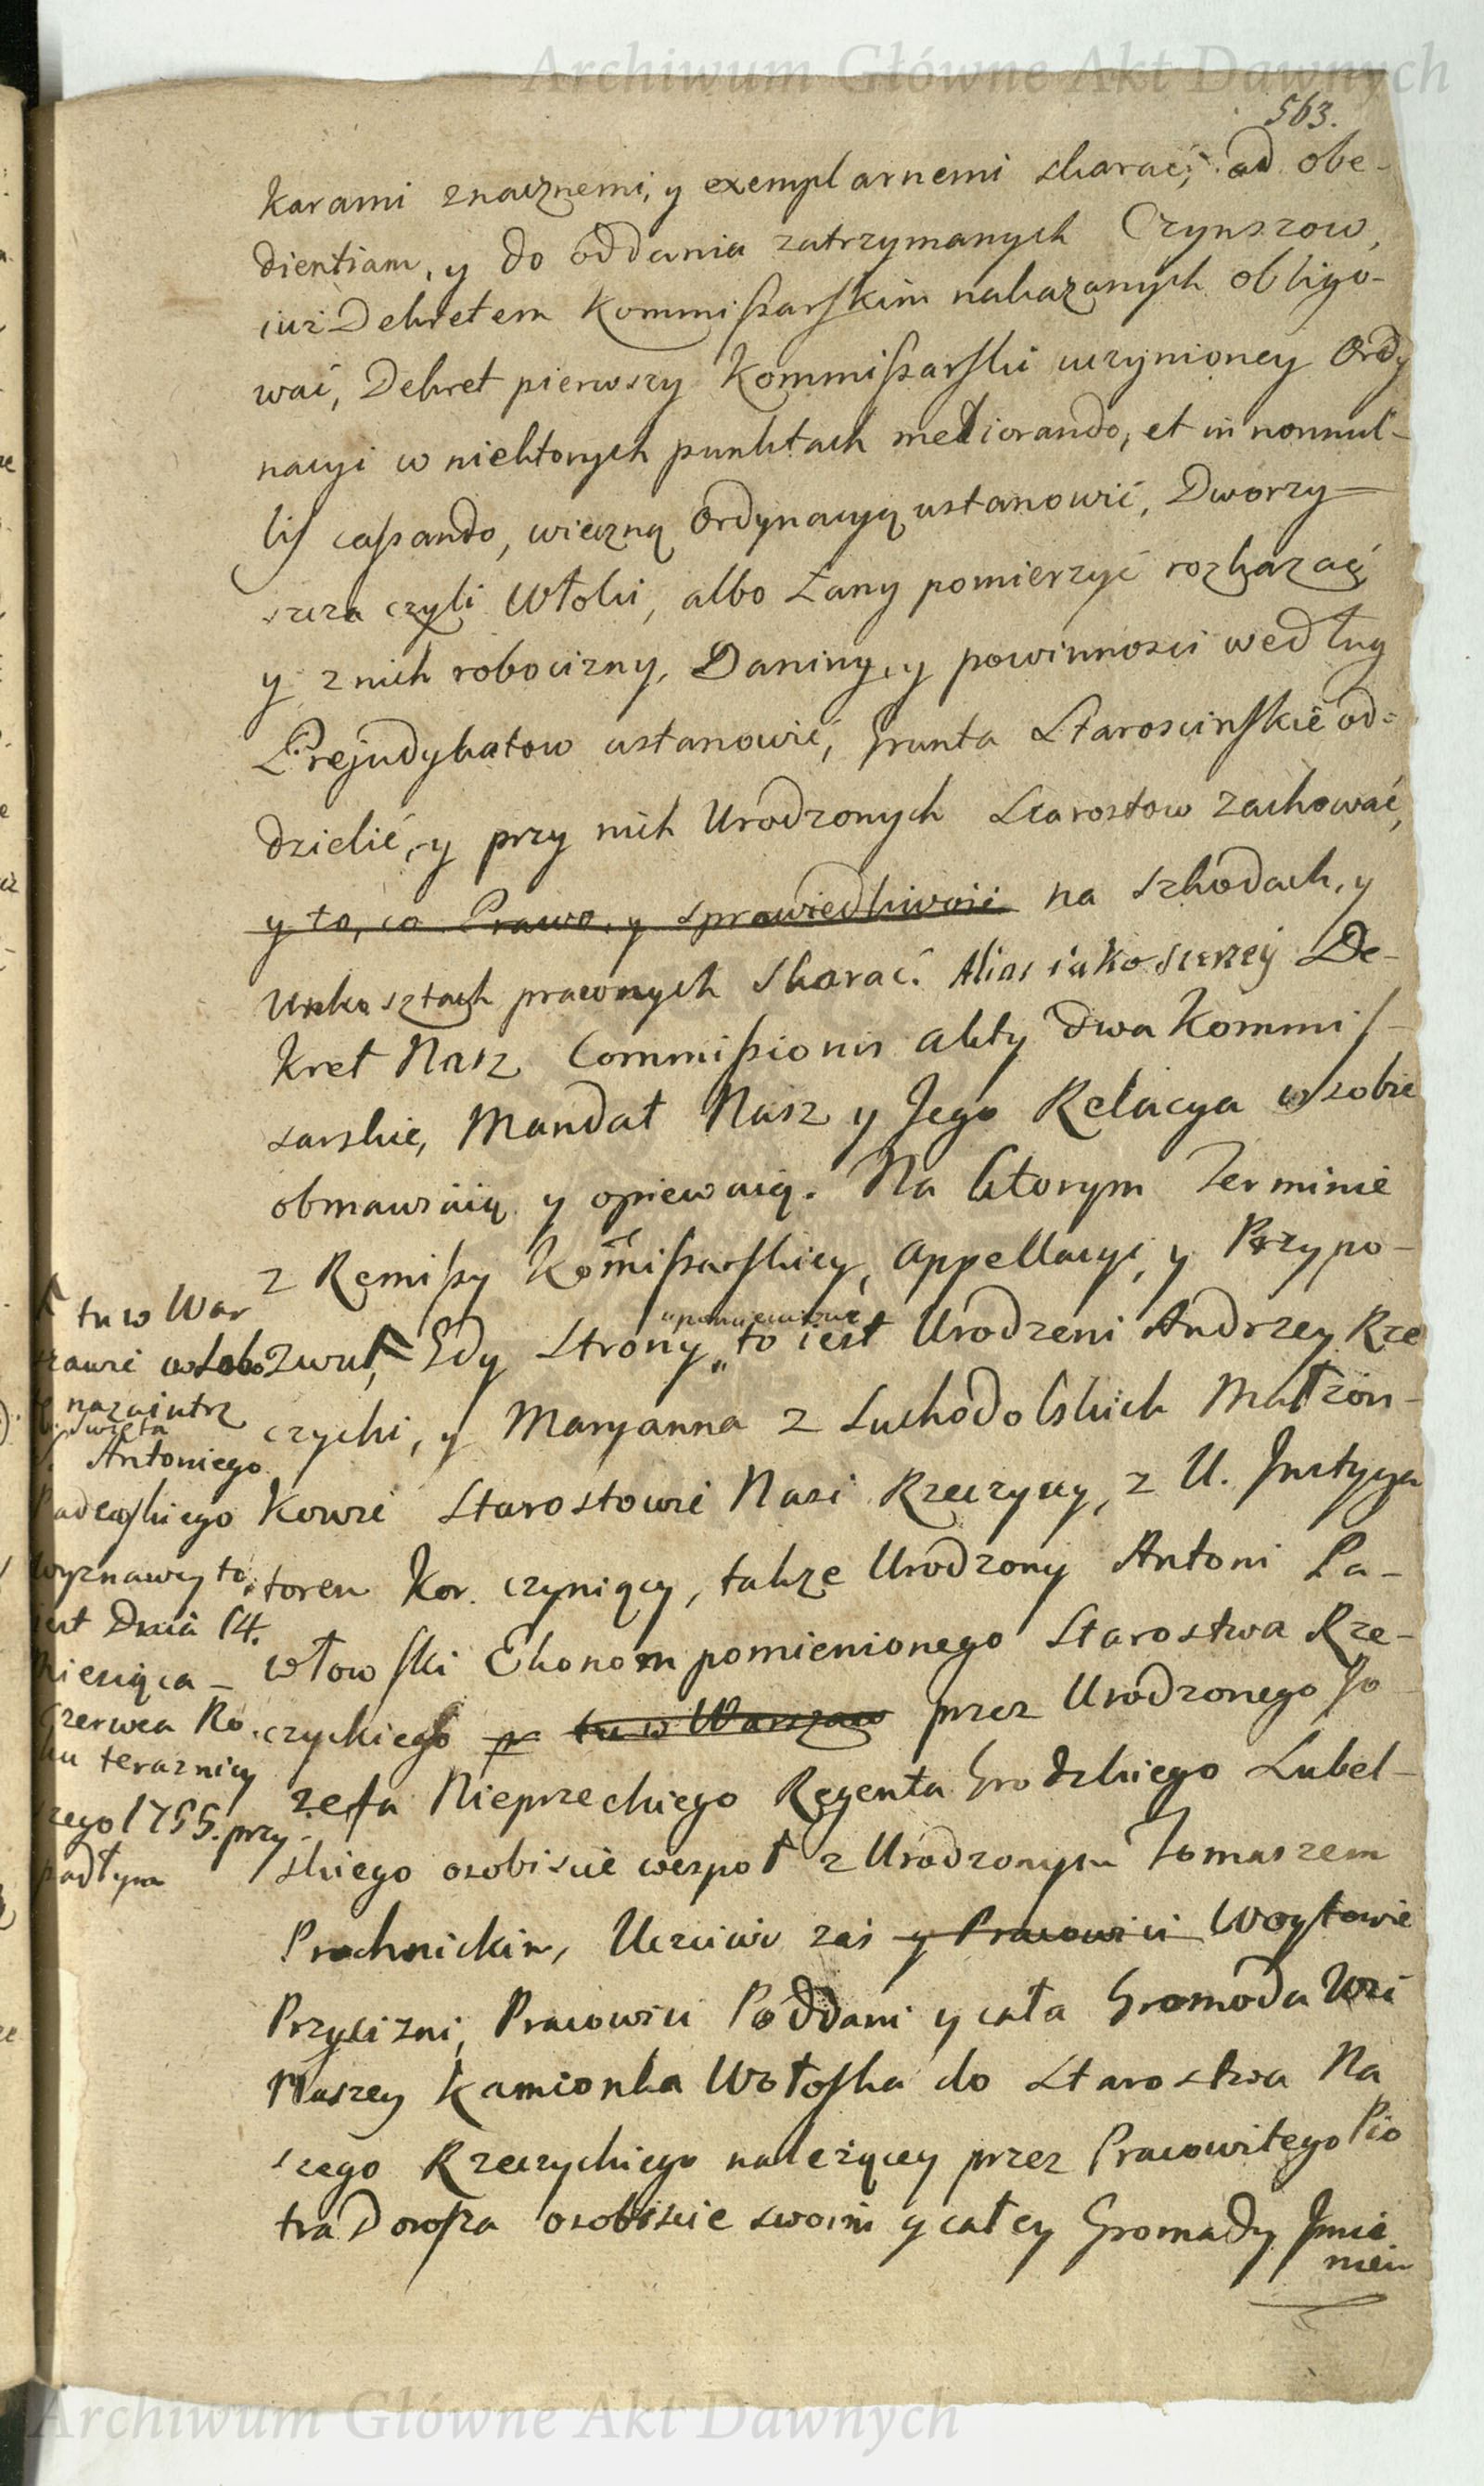 Archiwum Główne Akt Dawnych
563.
karami znacznemi, y exemplarnemi skarać, ad obe-
dientiam, y do oddania zatrzymanych Czynszow,
iuż Dekretem Kommissarskim nakazanych obligo-
wać, Dekret pierwszy Kommissarski uczynioney Ordy
nacyi w niektorych punktach meliorando, et in nonnul-
lis cassando, wieczną Ordynacyą ustanowić, Dworzy-
szcza czyli Włoki, albo Łany pomierzyć rozkazać
y z nich robocizny, Daniny, y powinnosci według
Prejudykatow ustanowić, Grunta Staroscinskie od-
dzielić, y przy nich Urodzonych Starostow zachować,
y to, co Prawo, y sprawiedliwość na szkodach, y
Unkosztach prawnych skarać. Alias iako szerzey De-
kret Nasz Commissionis akty dwa Kommis-
sarskie, Mandat Nasz y Jego Relacya w sobie
obmawiaią y opiewaią. Na ktorym Terminie
z Remissy Kom̃issarskiey, Appellacyi, y Przypo-
zwu, Gdy Strony to iest Urodzeni Andrzey Rze
czycki, y Maryanna z Suchodolskich Małżon-
kowie Starostowie Nasi Rzeczyccy, z U. Instyga
torem Kor. czyniący, także Urodzony Antoni Pa-
włowski Ekonom pomienionego Starostwa Rze-
czyckiego p tu w Warszaw przez Urodzonego Jo
zefa Nieprzeckiego Regenta Grodzkiego Lubel-
skiego osobiscie wespoł z Urodzonym Tomaszem
Prochnickim, Uczciwi zaś y Pracowici Woytowie
Przysiżni, Pracowici Poddani y cała Gromada Wsi
Naszey Kamionka Wołoska do Starostwa Na
szego Rzeczyckiego należącey przez Pracowitego Pio
tra Dorosza osobiscie swoim y całey Gromady Jmie
niem
tu w War
szawie w Sobo
nazaiutrz
Swięta
Antoniego
Padewskiego
Wyznawcy to
iest Dnia 14.
Miesiąca
Czerwca Ro
ku terazniey
szego 1755. przy
padłym
Archiwum Główne Akt Dawnych